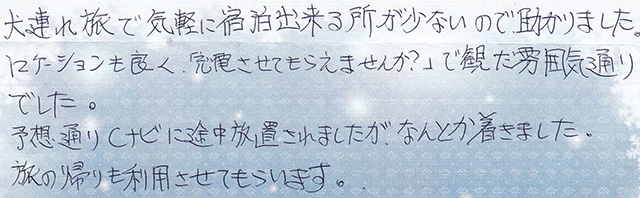 犬連れ旅で気軽に宿泊出来る所が少ないので助かりました。
ロケーションも良く、充電させてもらえませんか?」で観た雰囲気通り
でした。
予想通りCナビに途中放置されましたが、なんとか着きました。
旅の帰りも利用させてもらいます。